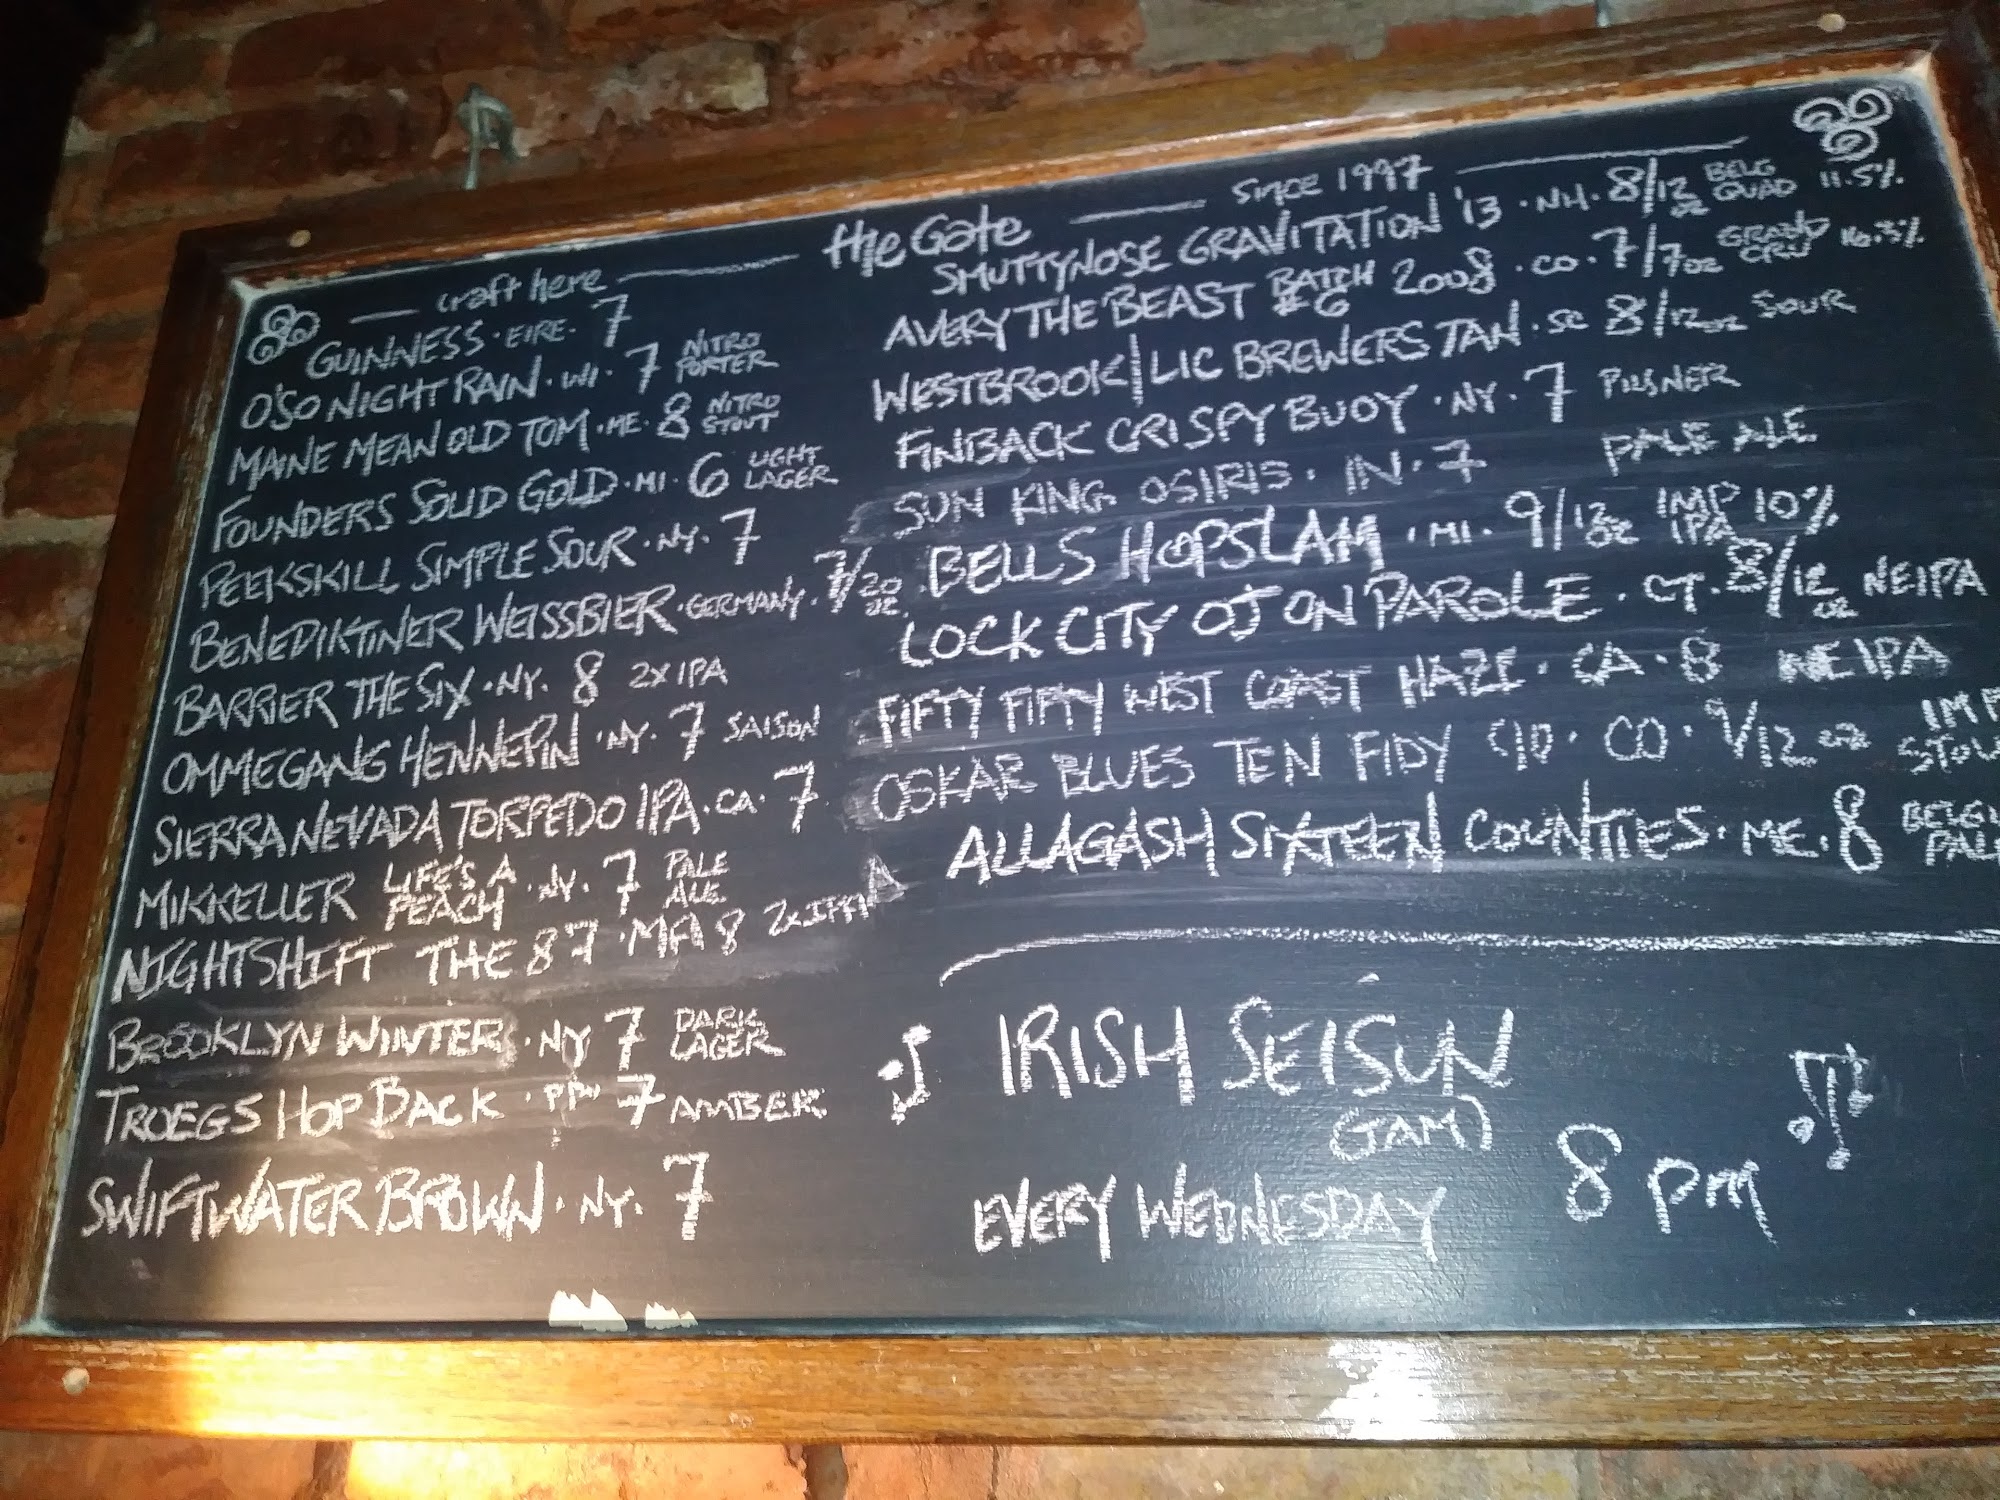 craft here the Gate since 1997
GUINNESS · EIRE · 7
O'SO NIGHT RAIN · WI · 7 NITRO PORTER
MAINE MEAN OLD TOM · ME · 8 NITRO STOUT
FOUNDERS SOLID GOLD · MI · 6 LIGHT LAGER
PEEKSKILL SIMPLE SOUR · NY · 7
BENEDIKTINER WEISSBIER · GERMANY · 7/20 oz
BARRIER THE SIX · NY · 8 2X IPA
OMMEGANG HENNEPIN · NY · 7 SAISON
SIERRA NEVADA TORPEDO IPA · CA · 7
MIKKELLER LIFE'S A PEACH · NY · 7 PALE ALE
NIGHTSHIFT THE 87 · MA 8 2X IPA
BROOKLYN WINTER · NY 7 DARK LAGER
TROEGS HOP BACK · PA 7 AMBER
SWIFTWATER BROWN · NY · 7
SMUTTYNOSE GRAVITATION '13 · NH · 8/12 oz BELG QUAD 11.5%
AVERY THE BEAST BATCH #6 2008 · CO · 7/7oz GRAND CRU 16.3%
WESTBROOK | LIC BREWERS TAN · SC 8/12oz SOUR
FINBACK CRISPY BUOY · NY · 7 PILSNER
SUN KING OSIRIS · IN · 7 PALE ALE
BELLS HOPSLAM · MI · 9/12 oz IMP IPA 10%
LOCK CITY OJ ON PAROLE · CT · 8/12 oz NEIPA
FIFTY FIFTY WEST COAST HAZE · CA · 8 NEIPA
OSKAR BLUES TEN FIDY · CO · 9/12 oz IMP
ALLAGASH SIXTEEN COUNTIES · ME · 8
IRISH SEISÚN
(JAM)
EVERY WEDNESDAY 8 pm